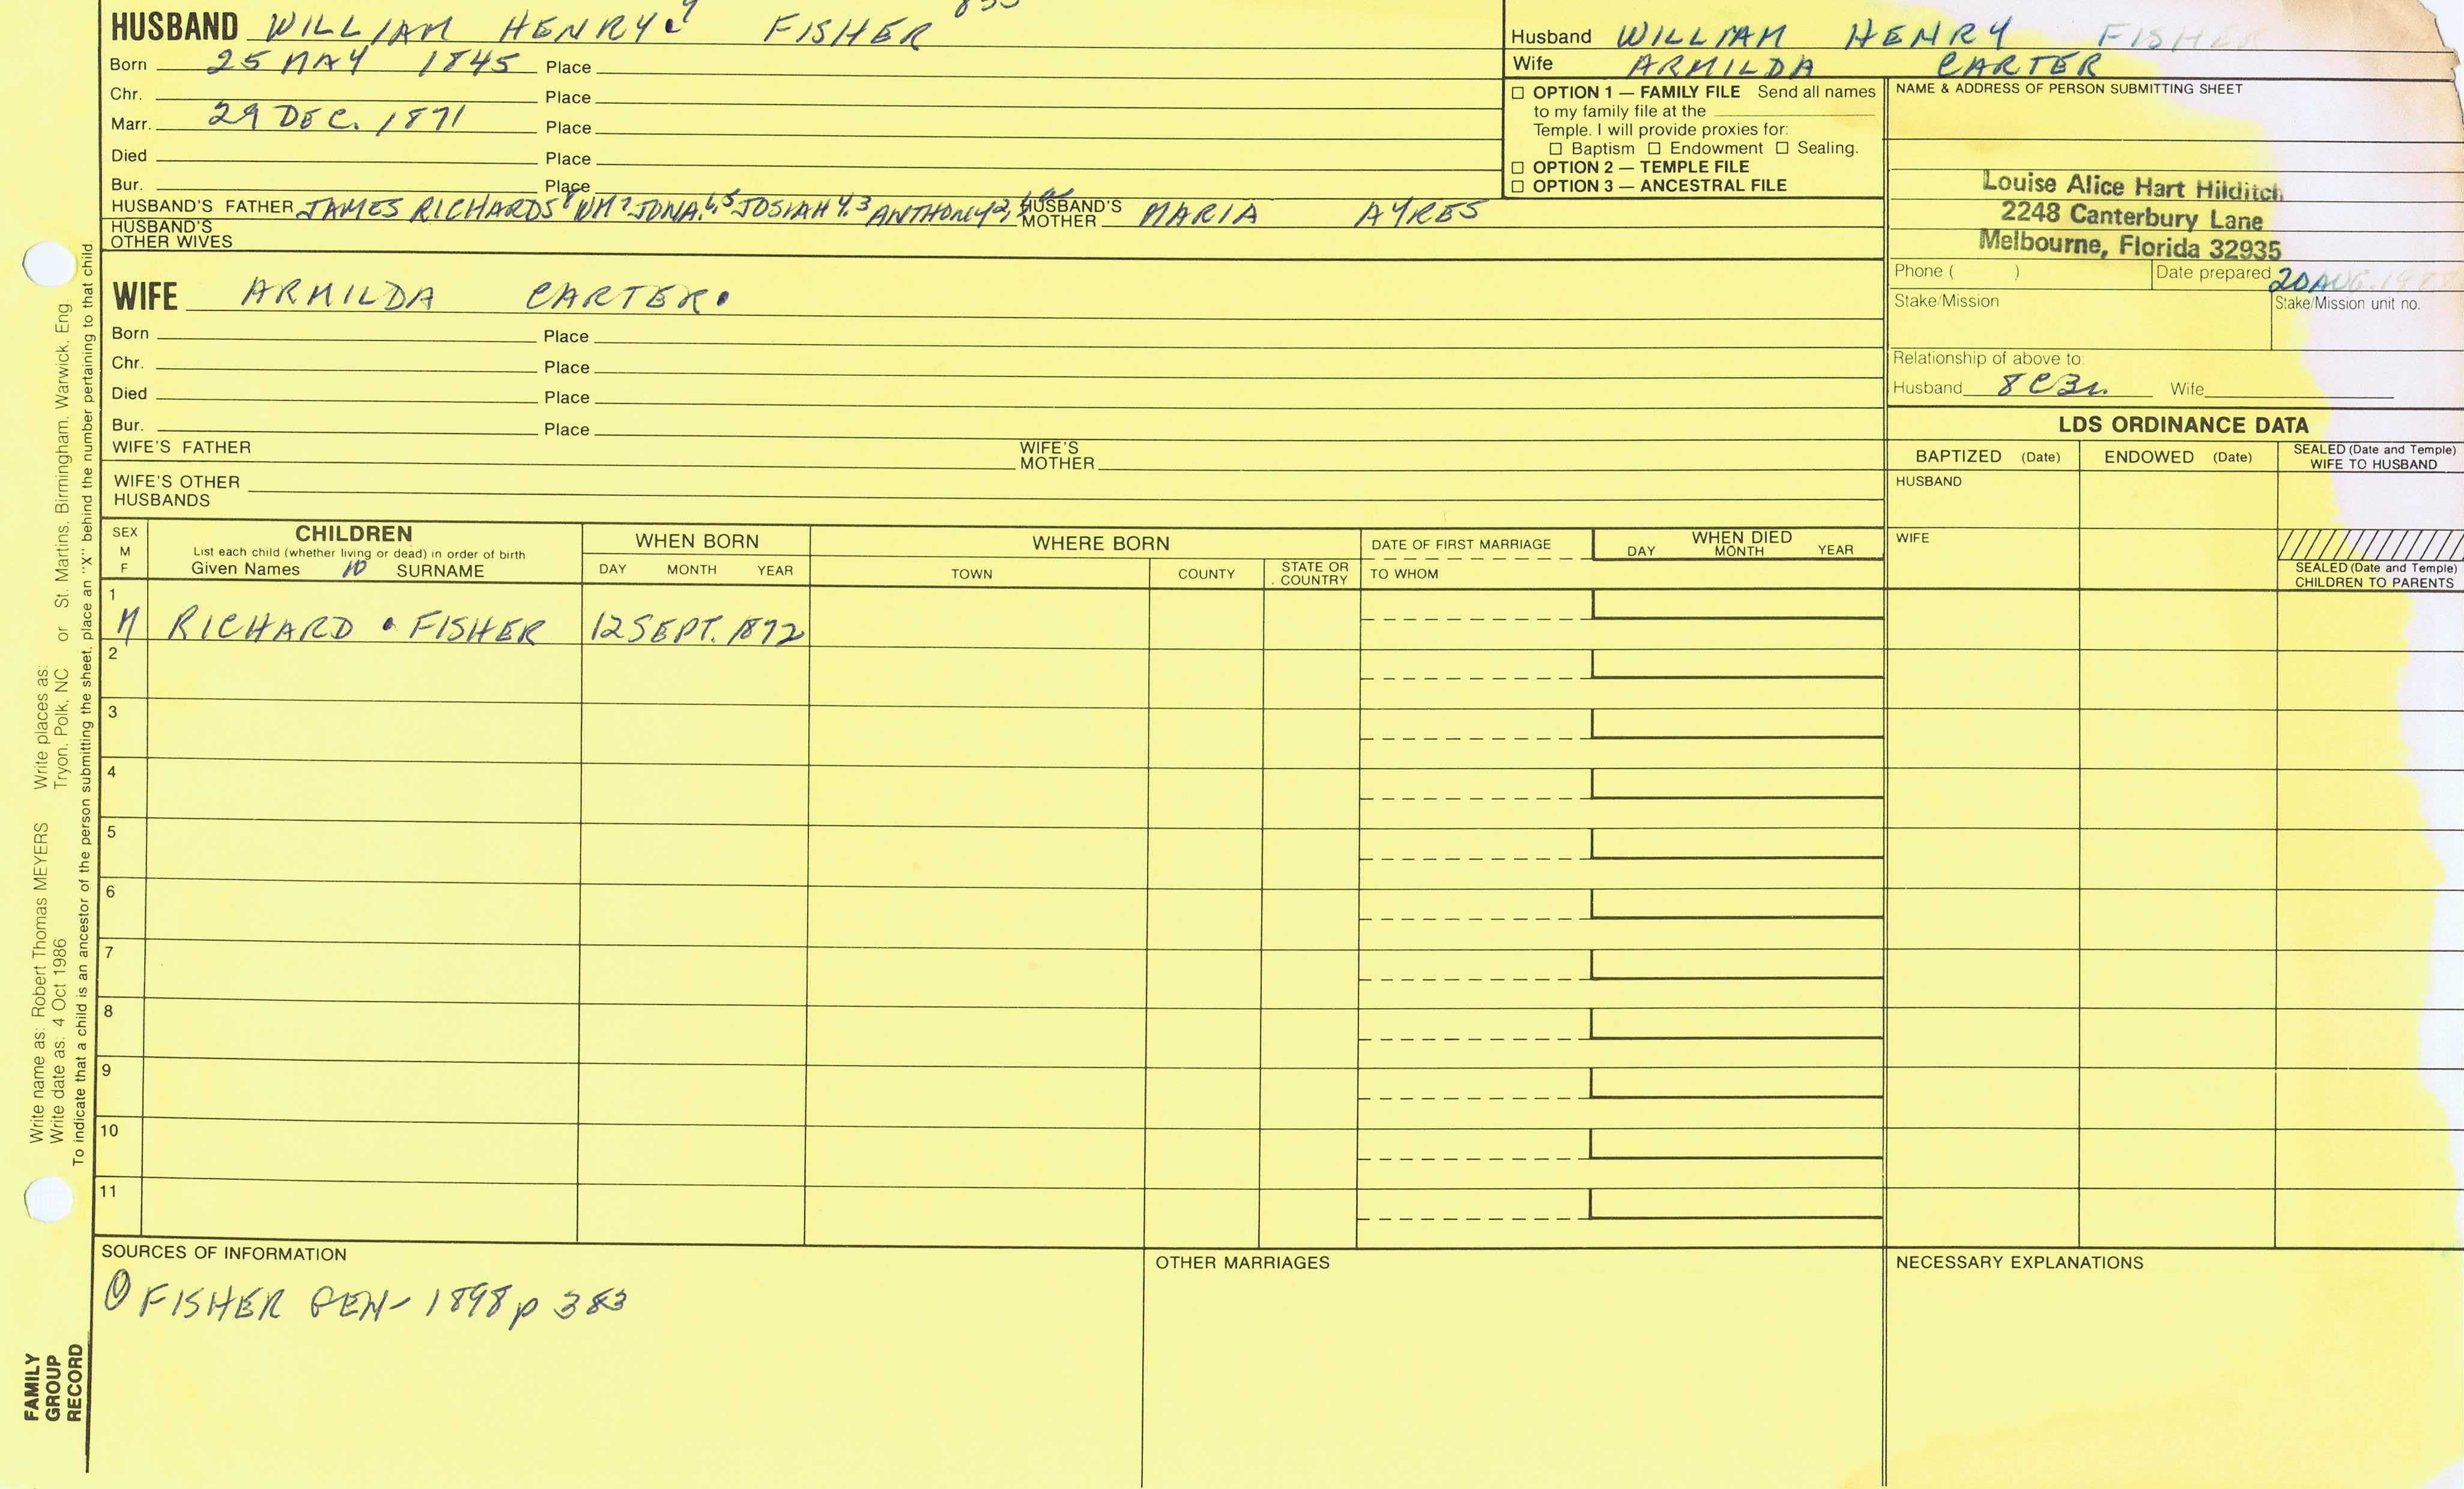 HUSBAND WILLIAM HENRY 9 FISHER
Born 25 MAY 1845 Place
Chr. Place
Marr. 29 DEC. 1871 Place
Died Place
Bur. Place
HUSBAND'S FATHER JAMES RICHARDS 8 WM 7 JONA. 6,5 JOSIAH 4,3 ANTHONY 2, HUSBAND'S MOTHER MARIA AYRES
HUSBAND'S OTHER WIVES
Husband WILLIAM HENRY FISHER
Wife ARMILDA CARTER
☐ OPTION 1 — FAMILY FILE Send all names
to my family file at the
Temple. I will provide proxies for:
☐ Baptism ☐ Endowment ☐ Sealing.
☐ OPTION 2 — TEMPLE FILE
☐ OPTION 3 — ANCESTRAL FILE
NAME & ADDRESS OF PERSON SUBMITTING SHEET
Louise Alice Hart Hilditch
2248 Canterbury Lane
Melbourne, Florida 32935
Phone ( ) Date prepared 20 AUG. 1988
Stake/Mission Stake/Mission unit no.
Relationship of above to:
Husband 8C3R Wife
WIFE ARMILDA CARTER.
Born Place
Chr. Place
Died Place
Bur. Place
WIFE'S FATHER WIFE'S MOTHER
WIFE'S OTHER HUSBANDS
LDS ORDINANCE DATA
BAPTIZED (Date) ENDOWED (Date) SEALED (Date and Temple) WIFE TO HUSBAND
HUSBAND
WIFE
SEALED (Date and Temple) CHILDREN TO PARENTS
SEX M F
CHILDREN
List each child (whether living or dead) in order of birth
Given Names 10 SURNAME
WHEN BORN
DAY MONTH YEAR
WHERE BORN
TOWN COUNTY STATE OR COUNTRY
DATE OF FIRST MARRIAGE
TO WHOM
WHEN DIED
DAY MONTH YEAR
1
M RICHARD • FISHER 12 SEPT. 1872
2
3
4
5
6
7
8
9
10
11
SOURCES OF INFORMATION
① FISHER GEN- 1898 p 383
OTHER MARRIAGES
NECESSARY EXPLANATIONS
Write name as: Robert Thomas MEYERS Write places as:
Write date as: 4 Oct 1986 Tryon, Polk, NC or St. Martins, Birmingham, Warwick, Eng
To indicate that a child is an ancestor of the person submitting the sheet, place an "X" behind the number pertaining to that child.
FAMILY
GROUP
RECORD